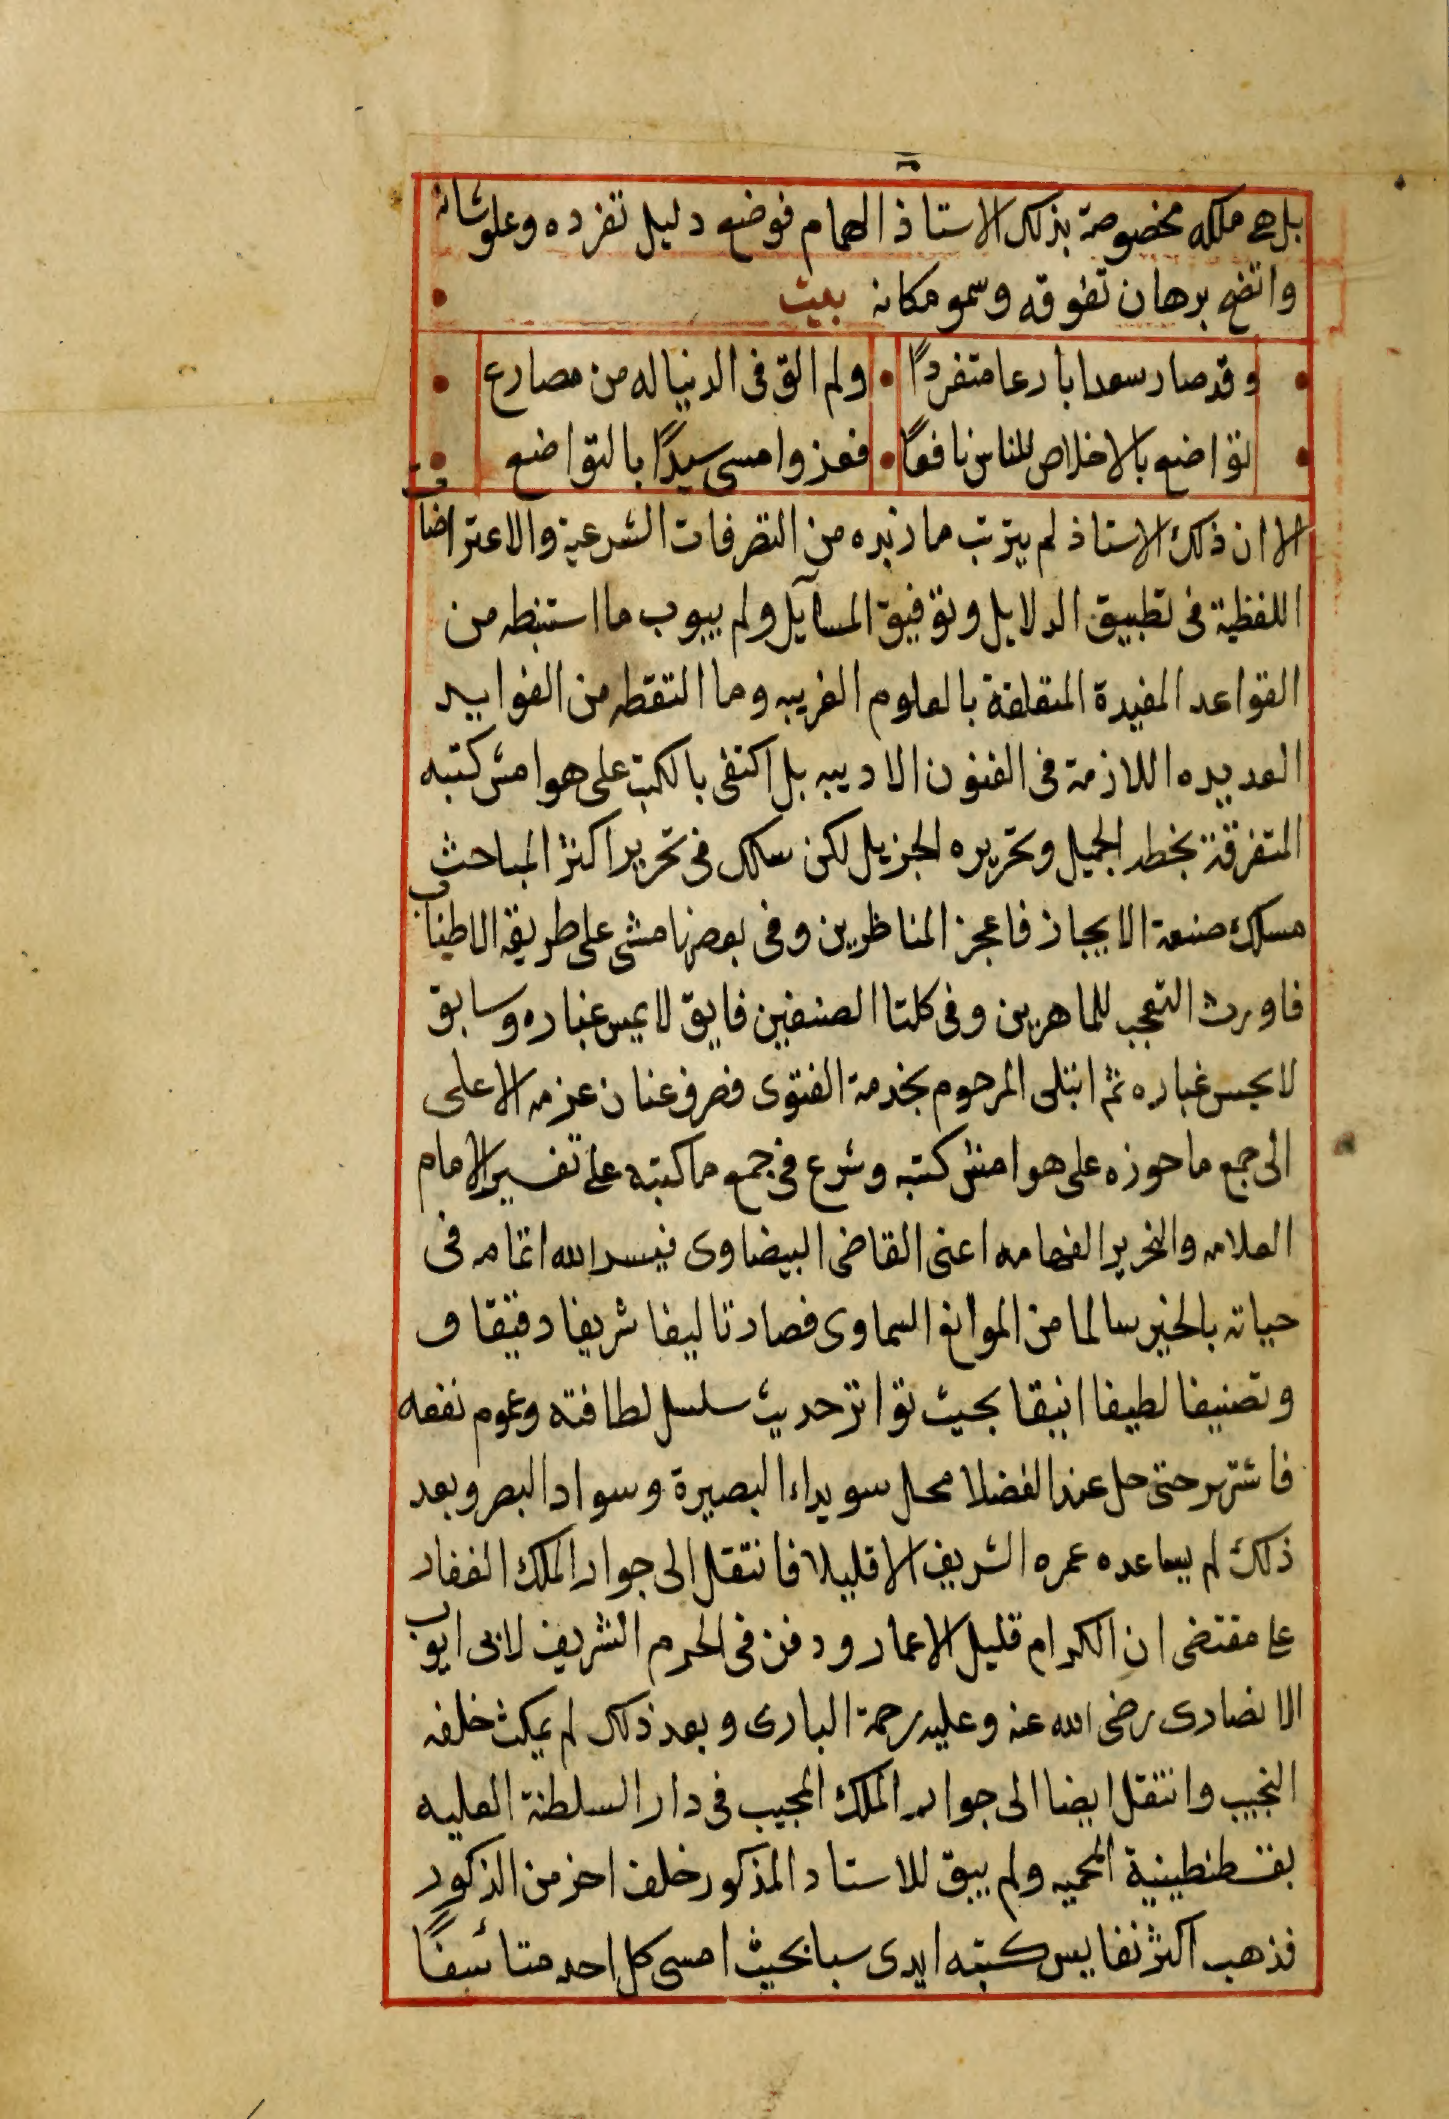 بل هى ملكه مخصوصة بذلك الاستاذ الهمام فوضع دليل تفرده وعلو شانه
واتضح برهان تفوقه وسمو مكانه بيت
وقد صار سعدا بارعا متفردًا ولم الق فى الدنيا له من مصارع
تواضع بالاخلاص للناس نافعًا فعز وامسى سيدًا بالتواضع
الا ان ذلك الاستاذ لم يترتب ما دبره من التصرفات الشرعية والاعتراضات
اللفظية فى تطبيق الدلايل وتوفيق المسآيل ولم يبوب ما استنبطه من
القواعد المفيدة المتعلقة بالعلوم الغريبه وما التقطه من الفوايد
العديده اللازمة فى الفنون الادبيه بل اكتفى بالكتب على هوامش كتبه
المتفرقة بخطه الجميل وتحريره الجزيل لكن سلك فى تحرير اكثر المباحث
مسلك صنعة الايجاز فاعجز المناظرين وفى بعضها مشى على طريقة الاطناب
فاورث التعجب للماهرين وفى كلتا الصنفين فايق لا يمس غباره وسابق
لا يحبس غباره ثم ابتلى المرحوم بخدمة الفتوى فصرف عنان عزمه الاعلى
الى جمع ما حوزه على هوامش كتبه وشرع فى جمع ما كتبه على تفسير الامام
العلامه والنحرير الفهامه اعنى القاضى البيضاوى فيسر الله اتمامه فى
حياته بالخير سالما من الموانع السماوى فصار تاليفا شريفا دقيقا ف
وتصنيفا لطيفا انيقا بحيث تواتر حديث سلسل لطافته وعموم نفعه
فاشتهر حتى حل عند الفضلا محل سويداء البصيرة وسواد البصر وبعد
ذلك لم يساعده عمره الشريف الا قليلا فانتقل الى جوار الملك الغفار
على مقتضى ان الكرام قليل الاعمار ودفن فى الحرم الشريف لابى ايوب
الانصارى رضى الله عنه وعليه رحمة البارى وبعد ذلك لم يمكث خلفه
النجيب وانتقل ايضا الى جوار الملك المجيب فى دار السلطنة العليه
بقسطنطينية المحميه ولم يبق للاستاد المذكور خلف اخر من الذكور
فذهب اكثر نفايس كتبه ايدى سبا بحيث امسى كل احد متائسفًا